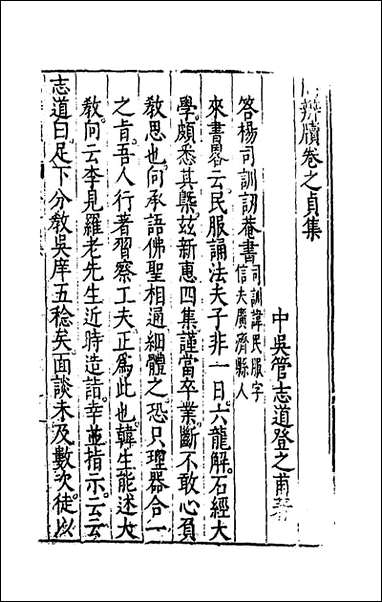 辯牘卷之貞集
中吳管志道登之甫著
答楊司訓訒菴書司訓諱民服字信夫廣濟縣人
來書畧云民服誦法夫子非一日六龍解石經大
學頗悉其槩茲新惠四集謹當卒業斷不敢心負
教思也何承語佛聖相通細體之恐只理器合一
之肯吾人行著習察工夫正爲此也韓生能述大
教向云李見羅老先生近時造詣幸並指示云云
志道曰足下分教吳庠五稔矣面談未及數次徒以